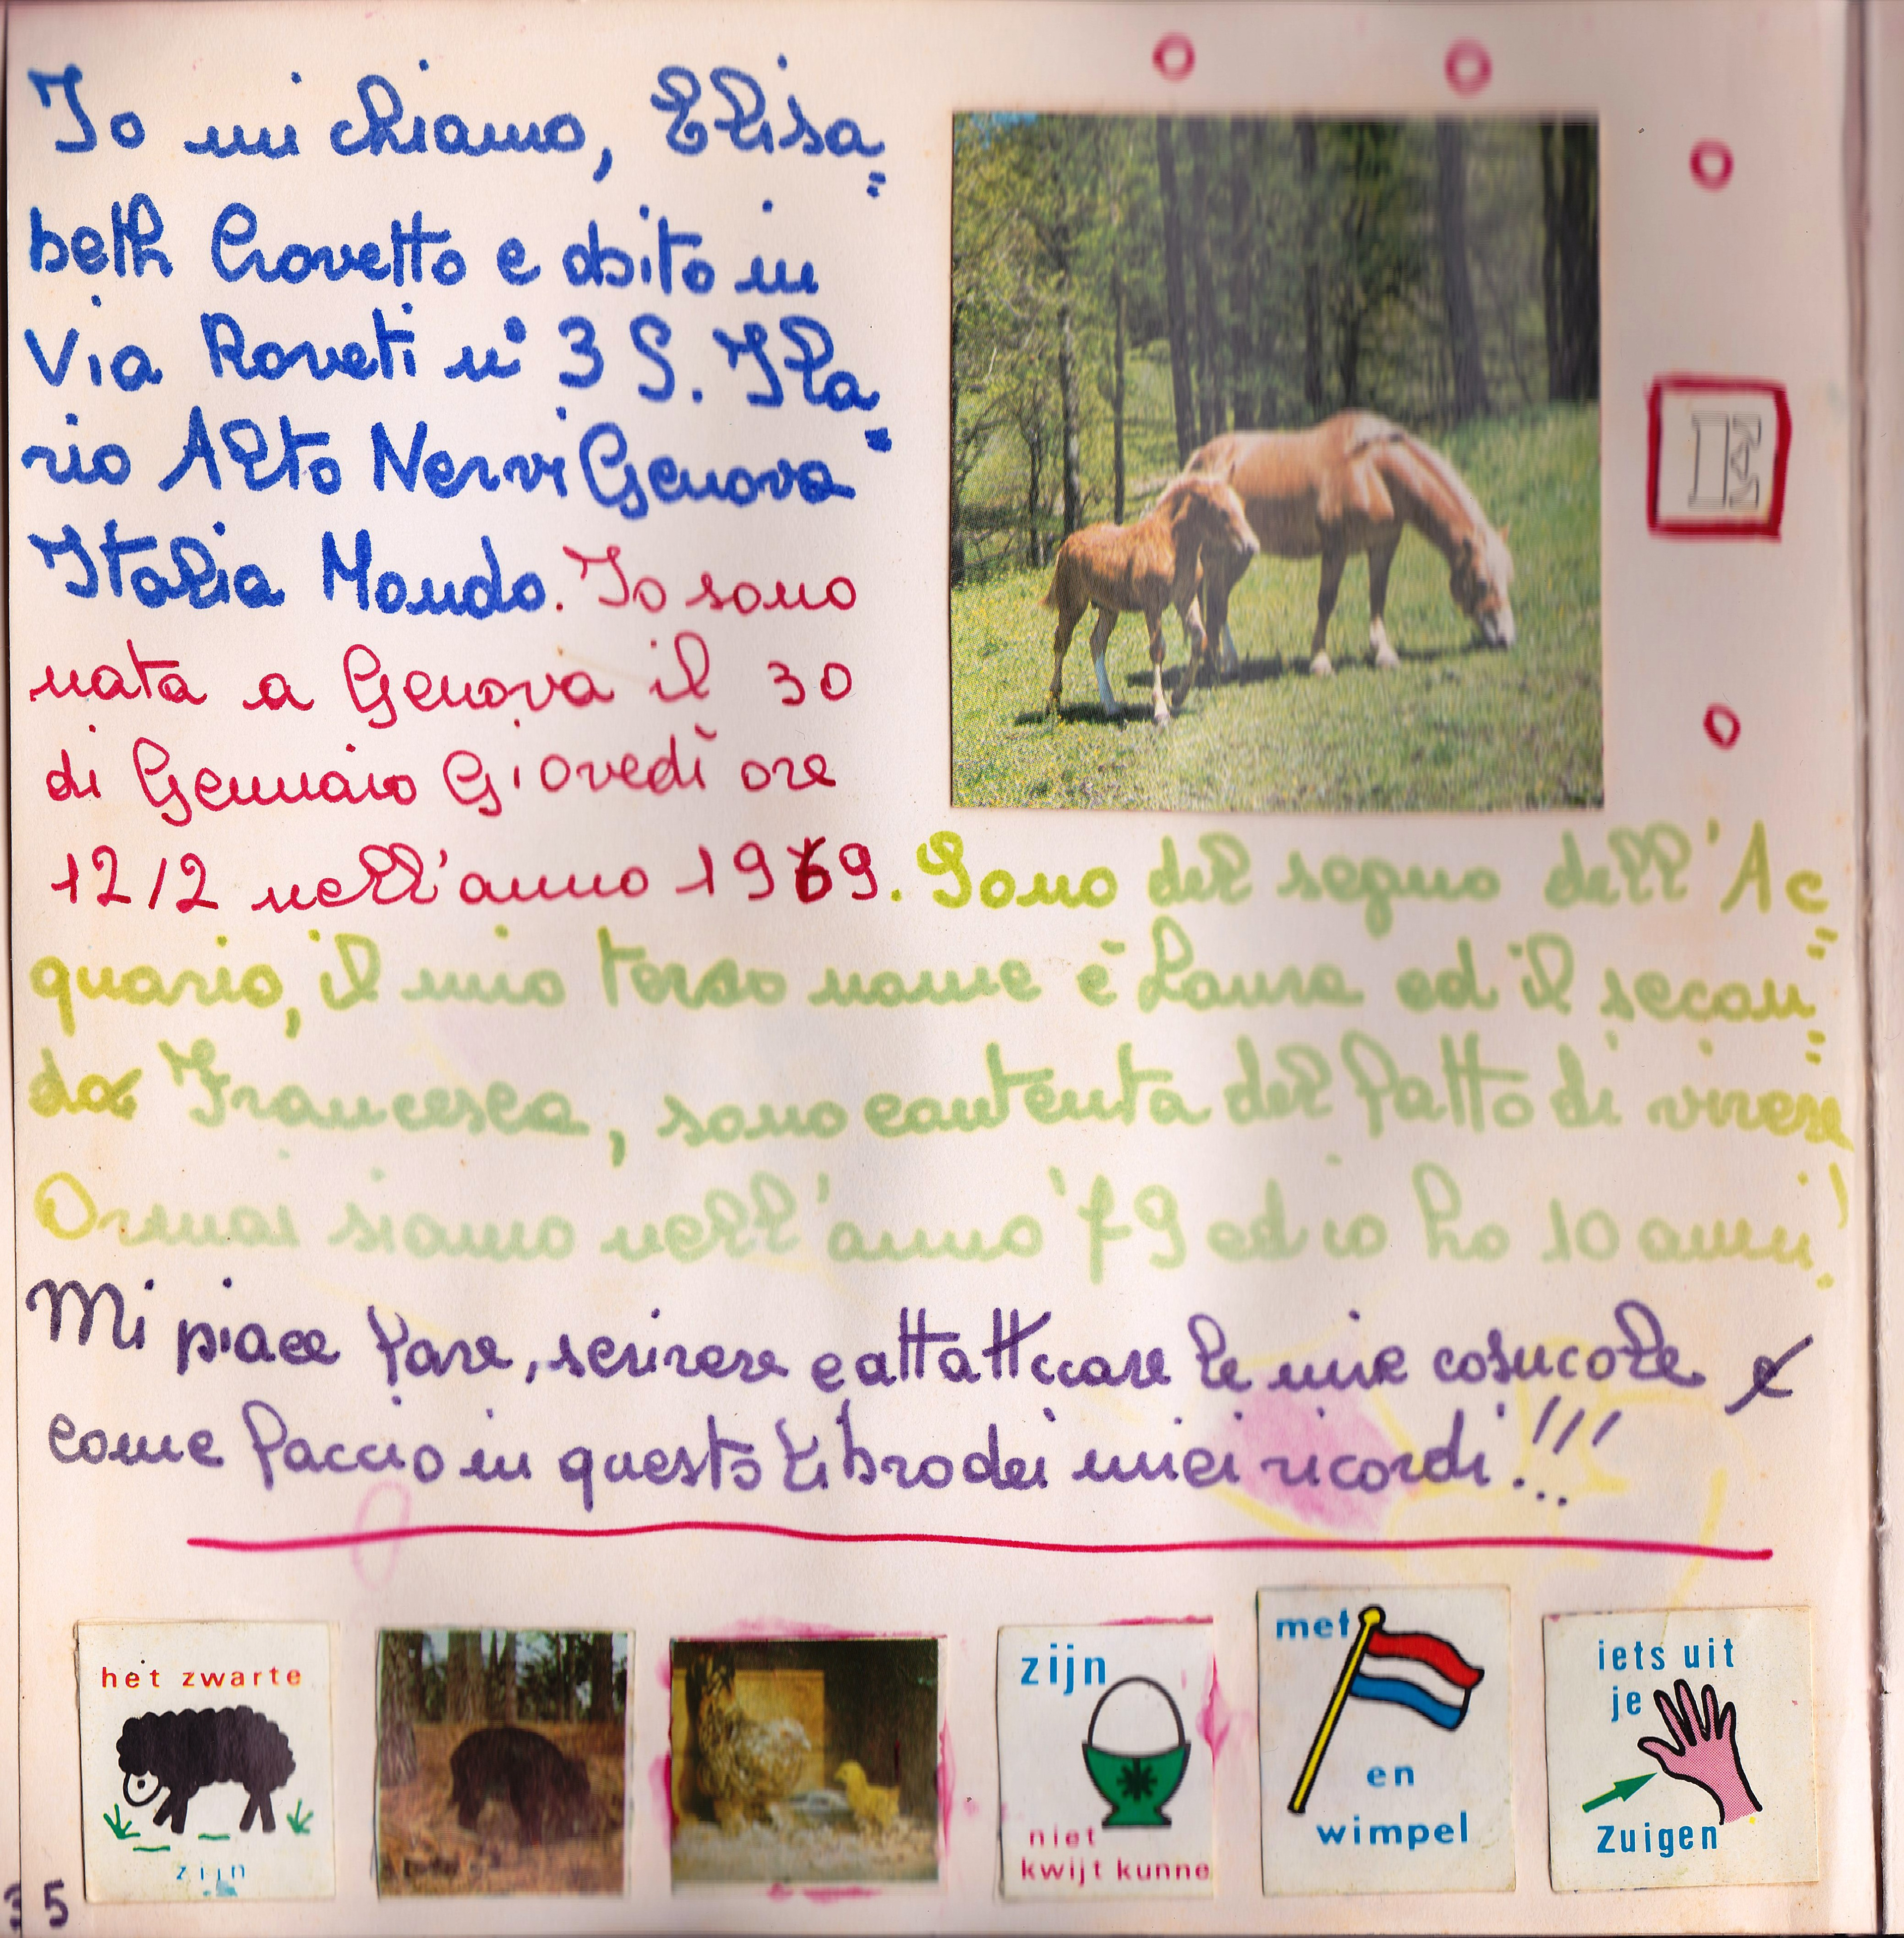 Io mi chiamo, Elisa=
beth Crovetto e abito in
Via Roveti n° 3 S. Ila=
rio Alto Nervi Genova
Italia Mondo. Io sono
nata a Genova il 30
di Gennaio Giovedì ore
12/2 nell'anno 1969. Sono del segno dell'Ac=
quario, il mio terzo nome è Laura ed il secon=
do Francesca, sono contenta del fatto di vivere!
Ormai siamo nell'anno '79 ed io ho 10 anni!
Mi piace fare, scrivere e attatticcare le mie cosucole e
come faccio in questo libro dei miei ricordi!!!
E
het zwarte
zijn
zijn
niet
kwijt kunne
met
en
wimpel
iets uit
je
zuigen
35